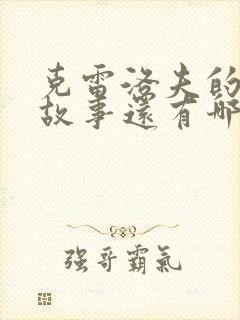 克雷洛夫的
故事還有哪
强哥霸氣